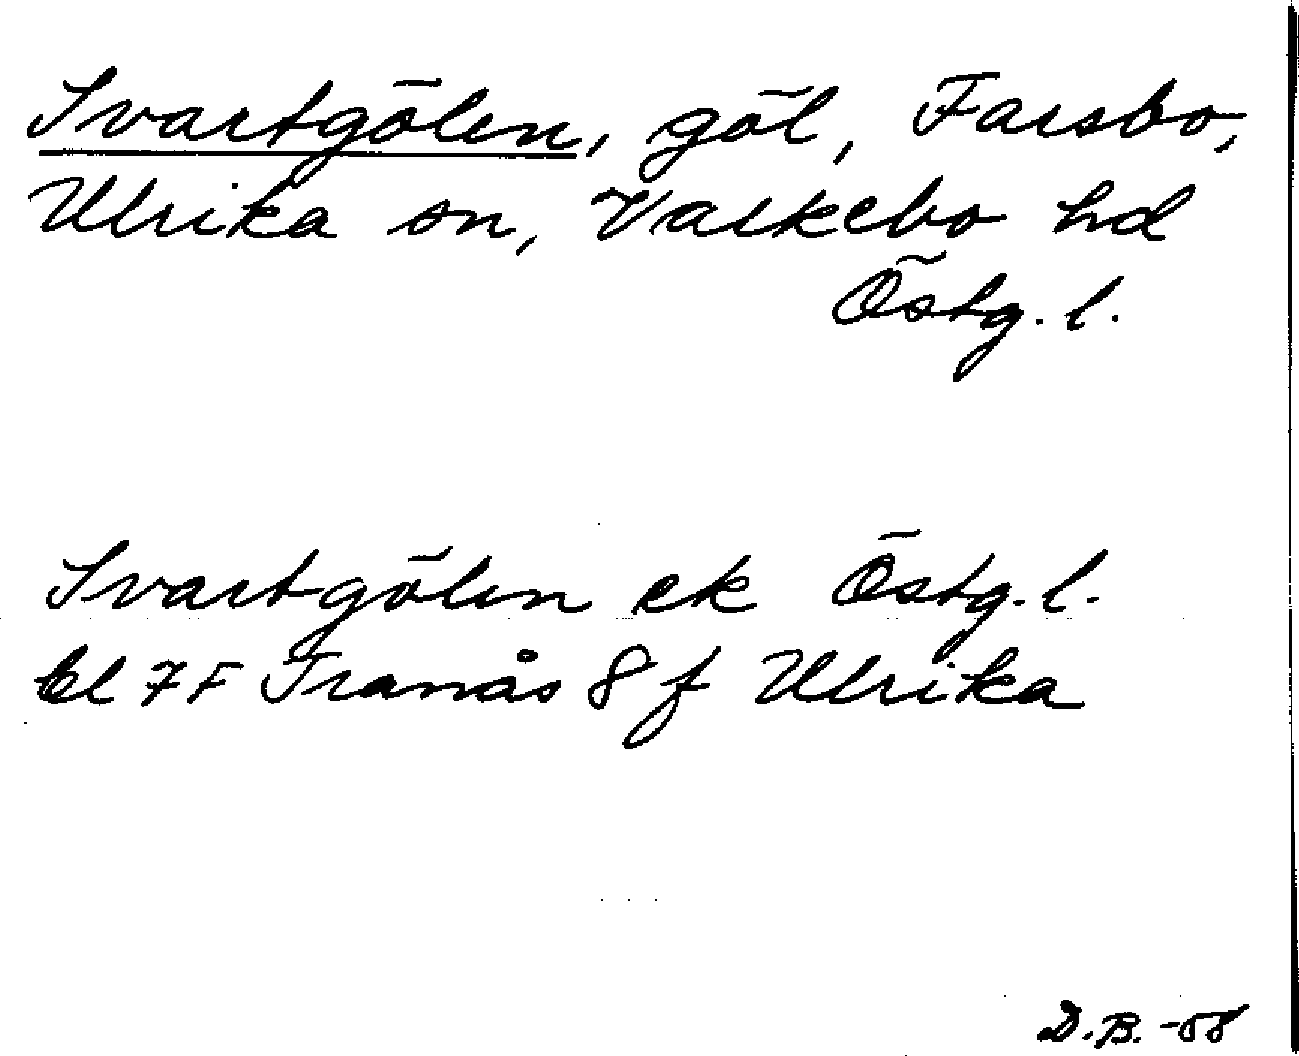 Svartgölen, göl, Farsbo,
Ulrika sn, Valkebo hd
Östg. l.
Svartgölen ek Östg. l.
bl 7F Tranås 8 f Ulrika
D.B. -58